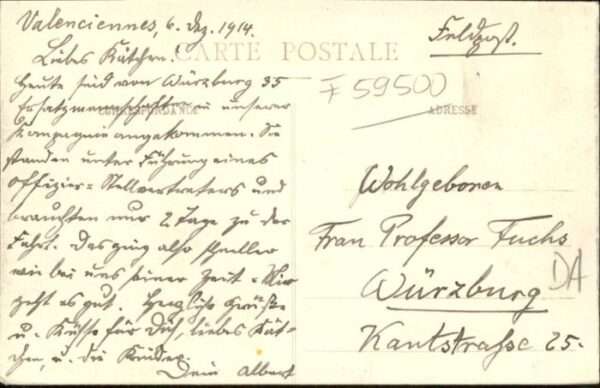 Valenciennes, 6. Dez. 1914.
Liebes Kätchen!
Heute sind von Würzburg 35
Ersatzmannschaften in unserer
Kompagnie angekommen. Sie
standen unter Führung eines
Offizier-Stellvertreters und
brauchten nur 2 Tage zu der
Fahrt. Das ging also schneller
wie bei uns seiner Zeit. Mir
geht es gut. Herzliche Grüße
u. Küsse für Dich, liebes Kät-
chen, u. die Kinder.
Dein Albert
CARTE POSTALE
CORRESPONDANCE
ADRESSE
Feldpost.
F 59500
Wohlgeboren
Frau Professor Fuchs
Würzburg
Kantstrasse 25.
DA